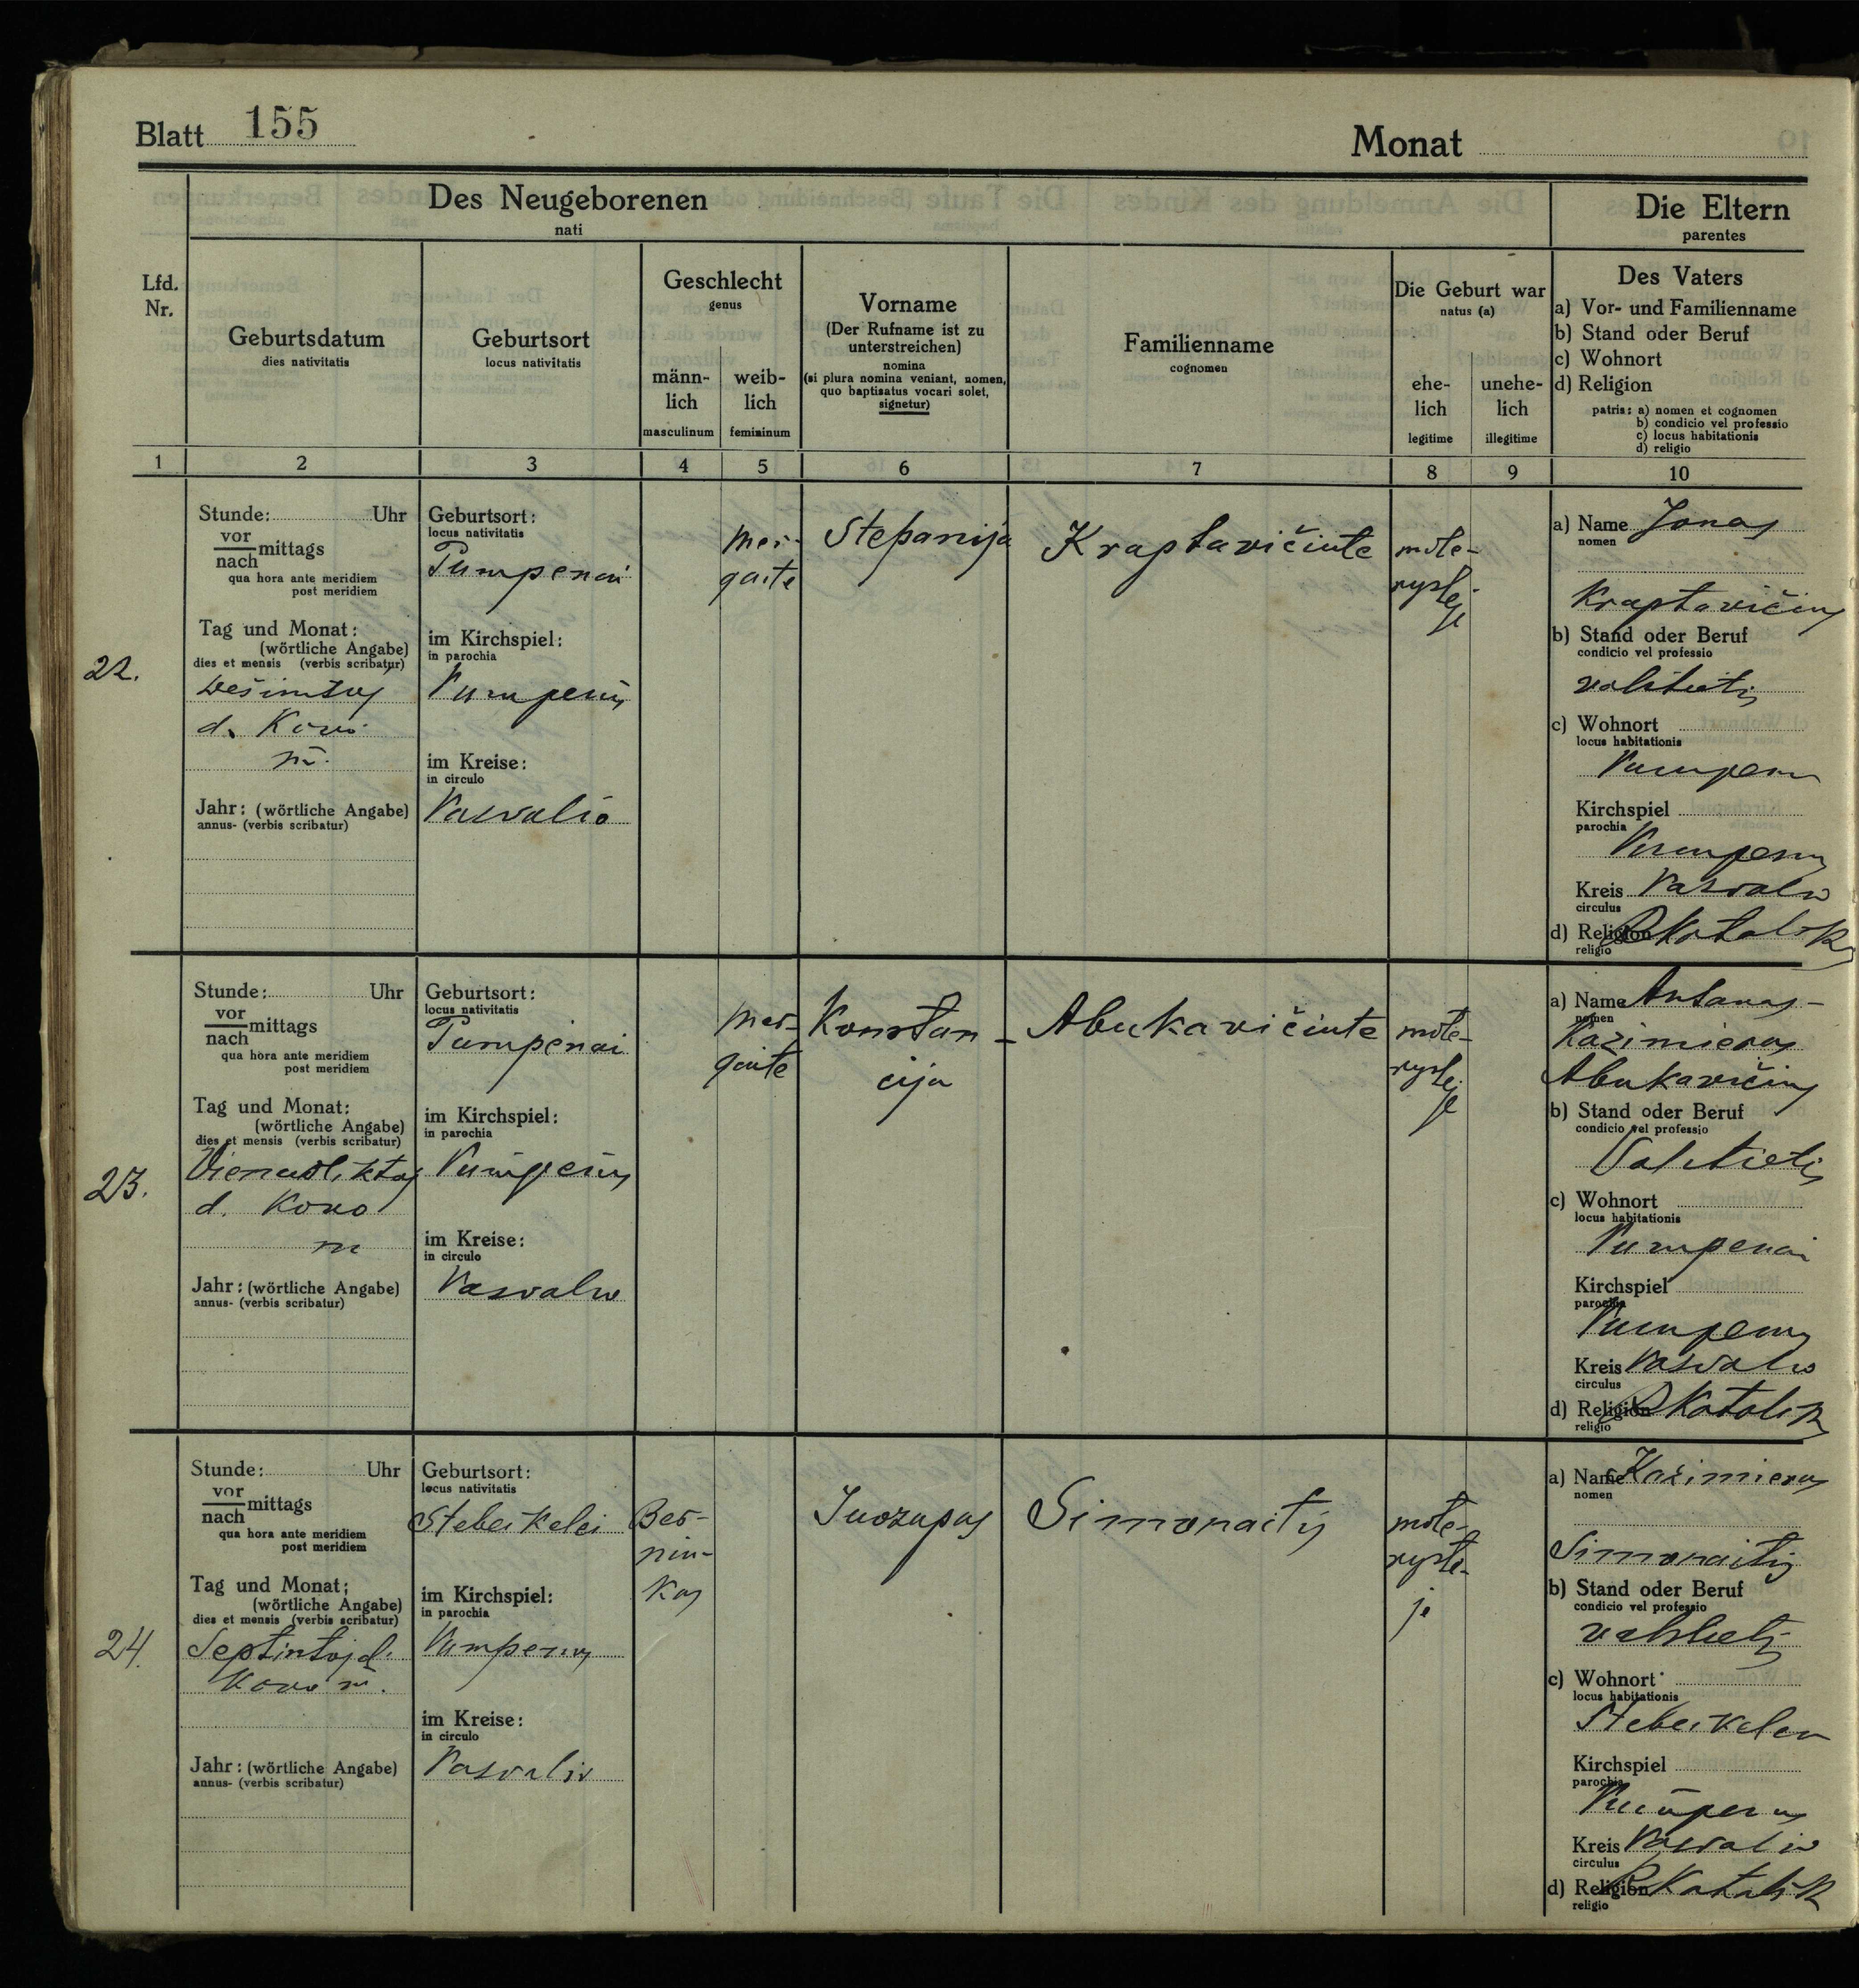 Blatt 155
Monat
Des Neugeborenen
nati
Die Eltern
parentes
Lfd.
Nr.
Geburtsdatum
dies nativitatis
Geburtsort
locus nativitatis
Geschlecht
genus
männ-
lich
masculinum
weib-
lich
femininum
Vorname
(Der Rufname ist zu
unterstreichen)
nomina
(si plura nomina veniant, nomen,
quo baptisatus vocari solet,
signetur)
Familienname
cognomen
Die Geburt war
natus (a)
ehe-
lich
legitime
unehe-
lich
illegitime
Des Vaters
a) Vor- und Familienname
b) Stand oder Beruf
c) Wohnort
d) Religion
patris: a) nomen et cognomen
b) condicio vel professio
c) locus habitationis
d) religio
1 2 3 4 5 6 7 8 9 10
22.
Stunde: Uhr
vor
nach mittags
qua hora ante meridiem
post meridiem
Tag und Monat:
(wörtliche Angabe)
dies et mensis (verbis scribatur)
Dešimtos
d. Kovo
m.
Jahr: (wörtliche Angabe)
annus- (verbis scribatur)
Geburtsort:
locus nativitatis
Pumpenai
im Kirchspiel:
in parochia
Pumpenų
im Kreise:
in circulo
Pasvalio
Mer-
gaitė
Stepanija
Kraptavičiutė
mote-
rystė
je
a) Name Jonas
nomen
Kraptavičius
b) Stand oder Beruf
condicio vel professio
valstietis
c) Wohnort
locus habitationis
Pumpenu
Kirchspiel
parochia
Pumpenų
Kreis Pasvalio
circulus
d) Religion R Katalik
religio
23.
Stunde: Uhr
vor
nach mittags
qua hora ante meridiem
post meridiem
Tag und Monat:
(wörtliche Angabe)
dies et mensis (verbis scribatur)
Vienuoliktos
d. Kovo
m
Jahr: (wörtliche Angabe)
annus- (verbis scribatur)
Geburtsort:
locus nativitatis
Pumpenai
im Kirchspiel:
in parochia
Pumpenų
im Kreise:
in circulo
Pasvalio
Mer-
gaitė
Konstan-
cija
Abukavičiutė
mote-
rystė
je
a) Name Antanas-
nomen
Kazimieras
Abukavičius
b) Stand oder Beruf
condicio vel professio
Valstietis
c) Wohnort
locus habitationis
Pumpenai
Kirchspiel
parochia
Pumpenų
Kreis Pasvalio
circulus
d) Religion R Katalik
religio
24.
Stunde: Uhr
vor
nach mittags
qua hora ante meridiem
post meridiem
Tag und Monat:
(wörtliche Angabe)
dies et mensis (verbis scribatur)
Septintos d.
Kovo m.
Jahr: (wörtliche Angabe)
annus- (verbis scribatur)
Geburtsort:
locus nativitatis
Stebeikelei
im Kirchspiel:
in parochia
Pumpenų
im Kreise:
in circulo
Pasvalio
Ber-
nin-
kas
Juozapas
Simonaitis
mote-
rystė-
je
a) Name Kazimieras
nomen
Simonaitis
b) Stand oder Beruf
condicio vel professio
valstietis
c) Wohnort
locus habitationis
Stebeikelen
Kirchspiel
parochia
Pumpenų
Kreis Pasvalio
circulus
d) Religion R Katalik
religio